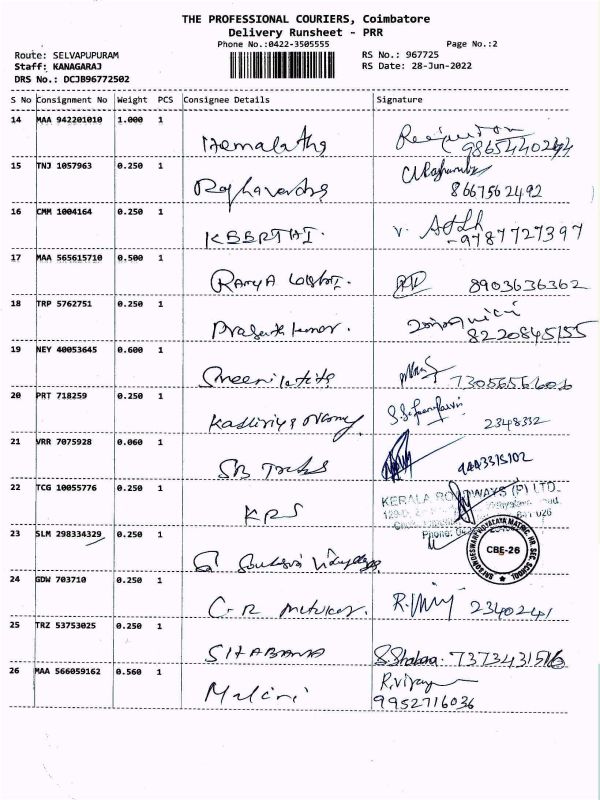 THE PROFESSIONAL COURIERS, Coimbatore
Delivery Runsheet - PRR
Phone No.:0422-3505555
Page No.:2
Route: SELVAPUPURAM
RS No.: 967725
Staff: KANAGARAJ
RS Date: 28-Jun-2022
DRS No.: DCJB96772502
S No Consignment No Weight PCS Consignee Details Signature
14 MAA 942201010 1.000 1
Hemalatha
15 TNJ 1057963 0.250 1
8667562492
16 CMM 1004164 0.250 1
KEERTHI.
9787727397
17 MAA 565615710 0.500 1
RAMYA
8903636362
18 TRP 5762751 0.250 1
8220845155
19 NEY 40053645 0.600 1
20 PRT 718259 0.250 1
2348332
21 VRR 7075928 0.060 1
9443315102
22 TCG 10055776 0.250 1
KRS
KERALA ROADWAYS (P) LTD.
Phone:
23 SLM 298334329 0.250 1
CBE-26
24 GDW 703710 0.250 1
23402241
25 TRZ 53753025 0.250 1
SHABANA
26 MAA 566059162 0.560 1
Malini
R.vijaya
9952716036